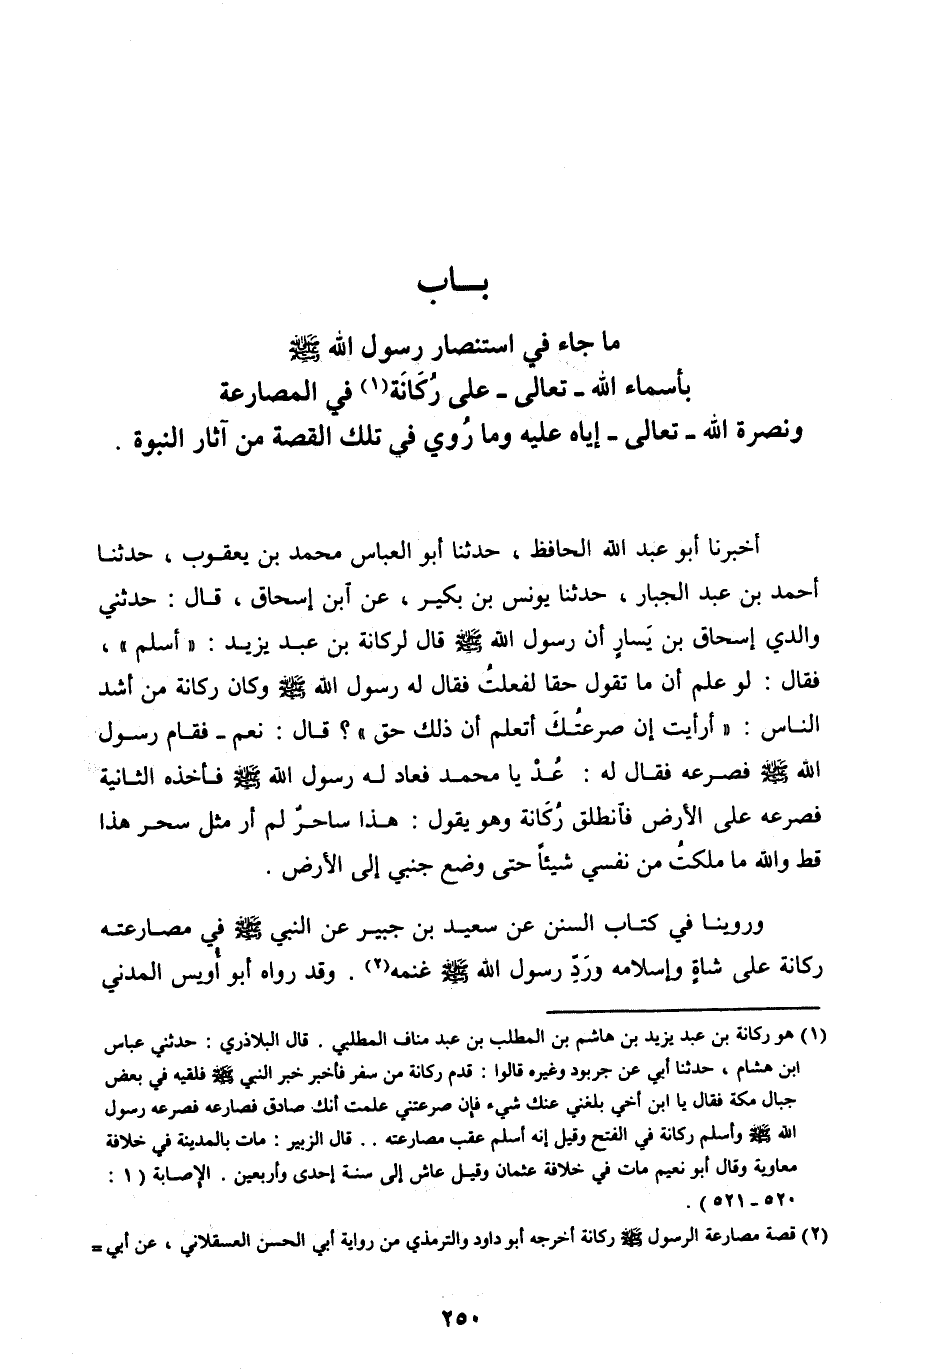 بـــاب
ما جاء في استنصار رسول الله ﷺ
بأسماء الله ـ تعالى ـ على رُكَانَة(١) في المصارعة
ونصرة الله ـ تعالى ـ إياه عليه وما رُوي في تلك القصة من آثار النبوة .
أخبرنا أبو عبد الله الحافظ ، حدثنا أبو العباس محمد بن يعقوب ، حدثنا
أحمد بن عبد الجبار ، حدثنا يونس بن بكير ، عن آبن إسحاق ، قال : حدثني
والدي إسحاق بن يَسارٍ أن رسول الله ﷺ قال لركانة بن عبد يزيد : « أسلم » ،
فقال : لو علم أن ما تقول حقا لفعلتُ فقال له رسول الله ﷺ وكان ركانة من أشد
الناس : « أرأيت إن صرعتُكَ أتعلم أن ذلك حق » ؟ قال : نعم ـ فقام رسول
الله ﷺ فصرعه فقال له : عُدْ يا محمد فعاد له رسول الله ﷺ فأخذه الثانية
فصرعه على الأرض فآنطلق رُكَانة وهو يقول : هذا ساحرٌ لم أر مثل سحر هذا
قط والله ما ملكتُ من نفسي شيئاً حتى وضع جنبي إلى الأرض .
وروينا في كتاب السنن عن سعيد بن جبير عن النبي ﷺ في مصارعته
ركانة على شاةٍ وإسلامه ورَدِّ رسول الله ﷺ غنمه(٢) . وقد رواه أبو أُويس المدني
(١) هو ركانة بن عبد يزيد بن هاشم بن المطلب بن عبد مناف المطلبي . قال البلاذري : حدثني عباس
ابن هشام ، حدثنا أبي عن جربود وغيره قالوا : قدم ركانة من سفر فأخبر خبر النبي ﷺ فلقيه في بعض
جبال مكة فقال يا ابن أخي بلغني عنك شيء فإن صرعتني علمت أنك صادق فصارعه فصرعه رسول
الله ﷺ وأسلم ركانة في الفتح وقيل إنه أسلم عقب مصارعته . . قال الزبير : مات بالمدينة في خلافة
معاوية وقال أبو نعيم مات في خلافة عثمان وقيل عاش إلى سنة إحدى وأربعين . الإصابة ( ١ :
٥٢٠ ـ ٥٢١ ) .
(٢) قصة مصارعة الرسول ﷺ ركانة أخرجه أبو داود والترمذي من رواية أبي الحسن العسقلاني ، عن أبي =
٢٥٠